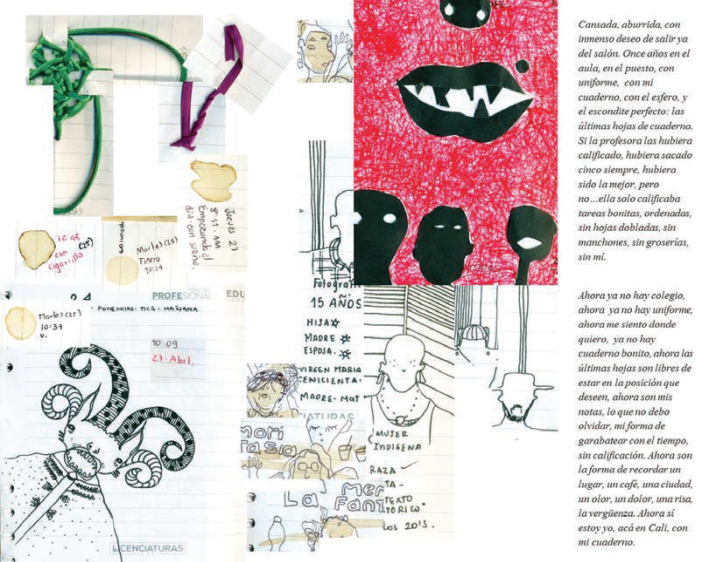 Jueves 27
8:11 AM
Empezando el
día con sueño.
12:48
con
cigarrillo
(25)
Martes (25)
TINTO
10:14
Martes (25)
10:37
v.
PROFESIONAL
EDU
PONENCIAS - TICS - MAÑANA
10:09
27. Abril.
LICENCIATURAS
Fotografí
15 AÑOS
HIJA
MADRE
ESPOSA.
VIRGEN MARIA
CENICIENTA.
MADRE- MUT
CIATURAS
MUJER
INDÍGENA
RAZA
TA-
TEXTO
TÓRICO
LOS 2015.
La Mer
Fant
Cansada, aburrida, con
inmenso deseo de salir ya
del salón. Once años en el
aula, en el puesto, con
uniforme, con mi
cuaderno, con el esfero, y
el escondite perfecto: las
últimas hojas de cuaderno.
Si la profesora las hubiera
calificado, hubiera sacado
cinco siempre, hubiera
sido la mejor, pero
no...ella solo calificaba
tareas bonitas, ordenadas,
sin hojas dobladas, sin
manchones, sin groserías,
sin mí.
Ahora ya no hay colegio,
ahora ya no hay uniforme,
ahora me siento donde
quiero, ya no hay
cuaderno bonito, ahora las
últimas hojas son libres de
estar en la posición que
deseen, ahora son mis
notas, lo que no debo
olvidar, mi forma de
garabatear con el tiempo,
sin calificación. Ahora son
la forma de recordar un
lugar, un café, una ciudad,
un olor, un dolor, una risa,
la vergüenza. Ahora sí
estoy yo, acá en Cali, con
mi cuaderno.